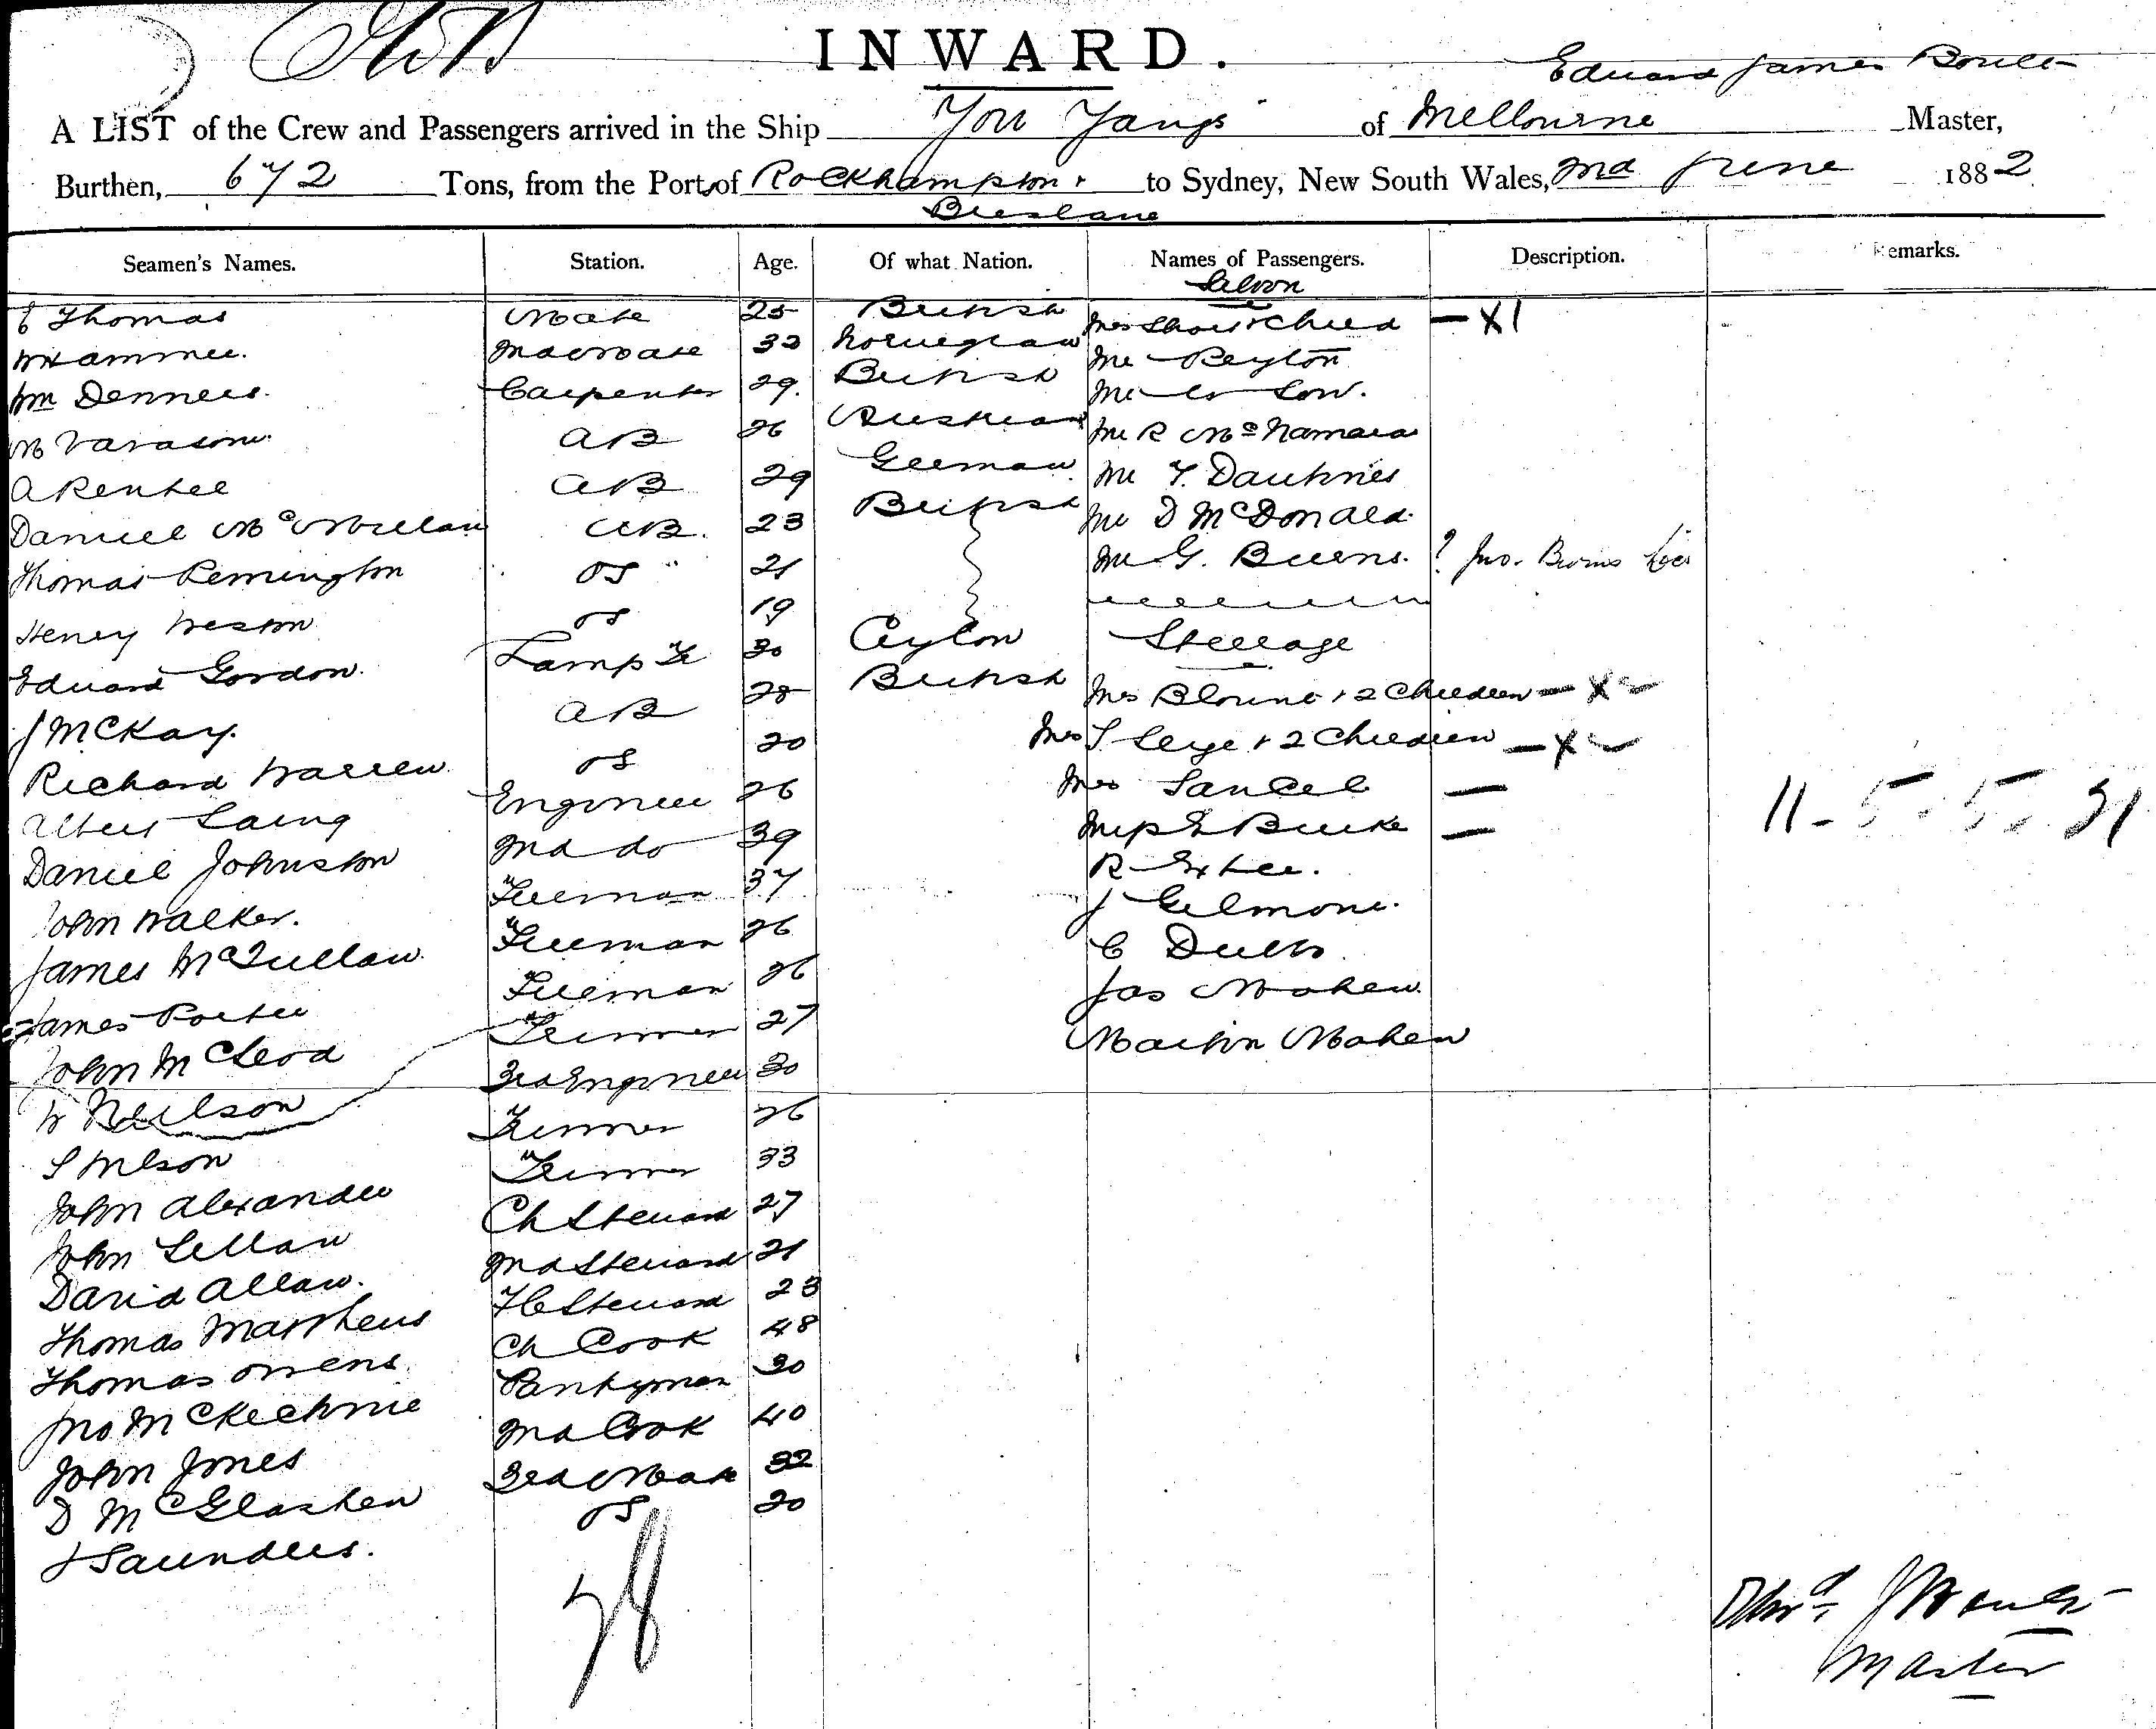 INWARD.
Edward James Boult
A LIST of the Crew and Passengers arrived in the Ship You Yangs of Melbourne Master,
Burthen, 672 Tons, from the Port of Rockhampton + to Sydney, New South Wales, 2nd June 1882
Brisbane
Seamen's Names. Station. Age. Of what Nation. Names of Passengers. Description. Remarks.
Saloon
Thomas Mate 25 British Mrs Child — X 1
2nd Mate 32 Norwegian Mr Peyton
Wm Carpenter 29. British Mr Low.
M AB 26 Mr R McNamara
A AB 29 German Mr
Daniel McMillan AB. 23 British Mr D McDonald
Thomas Remington OS 21 Mr G. Burns. ? Jno. Burns
Henry Weston OS 19
Edward Gordon. Lamp Tr 30 Ceylon Steerage
J McKay. AB 28 British Mrs Blount + 2 Children — X 2
Richard Warren OS 20 Mrs + 2 Children — X 2
Albert Laing Engineer 26 Mrs —
Daniel Johnston 2nd do 39 Burke — 11 - 5 - 5 - 21
John Walker. Fireman 37 R
James Fireman 26 J
James Porter Fireman 26 C
John McLeod Trimmer 27 Jas Mahen
W Neilson 3rd Engineer 30 Martin Mahen
S Trimmer 26
John Alexander Trimmer 33
John Ch Steward 27
David Allan. 2nd Steward 21
Thomas Matthews F C Steward 23
Thomas Owens Ch Cook 48
Jno McKechnie Pantryman 30
John Jones 2nd Cook 40
D McGlashen 3rd Mate 32
J Saunders. OS 20
28
Master